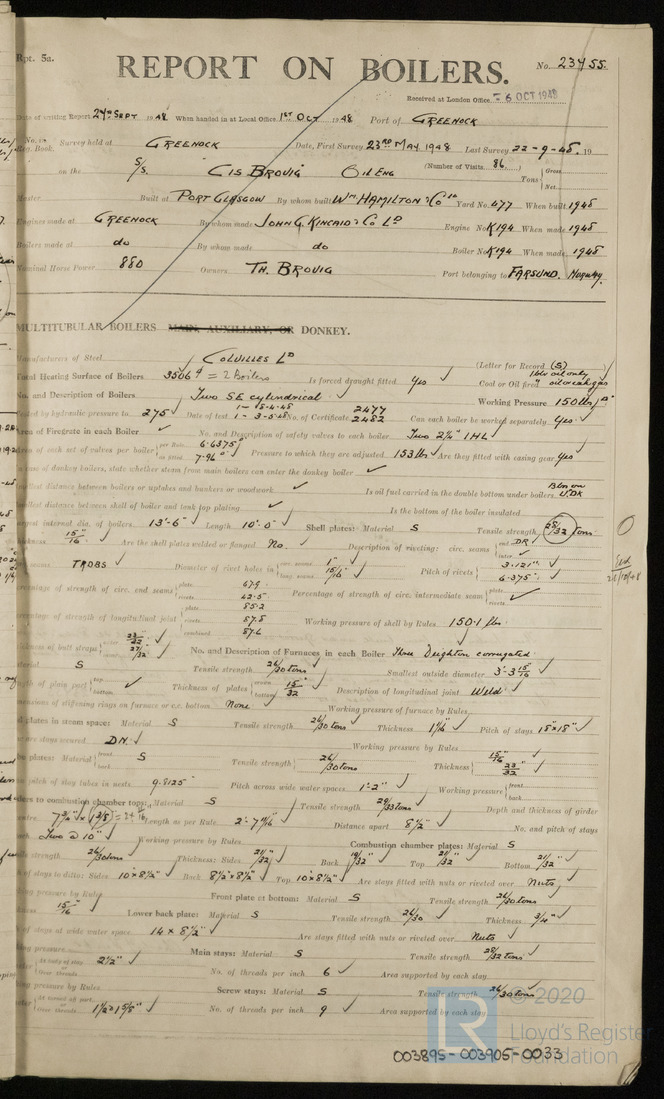 Rpt. 5a.
REPORT ON BOILERS.
No. 23455
Received at London Office - 6 OCT 1948
Date of writing Report 24th SEPT 1948 When handed in at Local Office 1st OCT 1948 Port of GREENOCK
No. in Reg. Book. Survey held at GREENOCK Date, First Survey 23RD MAY 1948 Last Survey 22-9-48. 19
(Number of Visits 86
on the S/S CIS BROVIG OIL ENG Tons Gross Net
Master Built at PORT GLASGOW By whom built Wm HAMILTON & Co Ld Yard No. 477 When built 1948
Engines made at GREENOCK By whom made JOHN G. KINCAID & Co LD Engine No. K194 When made 1948
Boilers made at do By whom made do Boiler No. K194 When made 1948
Nominal Horse Power 880 Owners TH. BROVIG Port belonging to FARSUND. NORWAY.
MULTITUBULAR BOILERS MAIN, AUXILIARY, OR DONKEY.
Manufacturers of Steel COLVILLES LD
(Letter for Record (S)
Total Heating Surface of Boilers 3506 = 2 Boilers Is forced draught fitted Yes Coal or Oil fired oil only
No. and Description of Boilers Two SE cylindrical Working Pressure 150 lbs
Tested by hydraulic pressure to 275 Date of test 3-5-48 No. of Certificate 2477 2482 Can each boiler be worked separately Yes
Area of Firegrate in each Boiler No. and Description of safety valves to each boiler Two 2¼" IHL
Area of each set of valves per boiler per Rule 6.6375 as fitted 7.96 Pressure to which they are adjusted 153 lbs Are they fitted with easing gear Yes
In case of donkey boilers, state whether steam from main boilers can enter the donkey boiler
Smallest distance between boilers or uptakes and bunkers or woodwork Is oil fuel carried in the double bottom under boilers
Smallest distance between shell of boiler and tank top plating Is the bottom of the boiler insulated
Largest internal dia. of boilers 13'-6" Length 10'-0" Shell plates: Material S Tensile strength 28/32 tons
Thickness 15/16" Are the shell plates welded or flanged No. Description of riveting: circ. seams end DR inter.
long. seams TRDBS Diameter of rivet holes in circ. seams 1" long. seams 15/16" Pitch of rivets 3.121" 6.375"
Percentage of strength of circ. end seams plate 67.9 rivets 42.5 Percentage of strength of circ. intermediate seam plate rivets
Percentage of strength of longitudinal joint plate 85.2 rivets 87.5 combined 87.6 Working pressure of shell by Rules 150.1 lbs
Thickness of butt straps 27/32 No. and Description of Furnaces in each Boiler Three Deighton corrugated
Material S Tensile strength 26/30 tons Smallest outside diameter 3'-3 15/16
Length of plain part top bottom Thickness of plates crown bottom 15/32 Description of longitudinal joint Weld
Dimensions of stiffening rings on furnace or c.c. bottom None Working pressure of furnace by Rules
End plates in steam space: Material S Tensile strength 26/30 tons Thickness 1 1/16" Pitch of stays 18" x 18"
How are stays secured DN. Working pressure by Rules
Tube plates: Material front back S Tensile strength 26/30 tons Thickness 15/16" 23/32
Mean pitch of stay tubes in nests 9.8125" Pitch across wide water spaces 1'-2" Working pressure front back
Girders to combustion chamber tops: Material S Tensile strength 28/32 tons Depth and thickness of girder
Length as per Rule 2'-7 9/16 Distance apart 8½" No. and pitch of stays
Two @ 10" Working pressure by Rules Combustion chamber plates: Material S
Tensile strength 26/30 tons Thickness: Sides 21/32 Back 19/32 Top 21/32 Bottom 21/32
Pitch of stays to ditto: Sides 10" x 8½" Back 8½" x 8½" Top 10" x 8½" Are stays fitted with nuts or riveted over Nuts
Working pressure by Rules Front plate at bottom: Material S Tensile strength 26/30 tons
Thickness 15/16" Lower back plate: Material S Tensile strength 26/30 Thickness 3/4"
Pitch of stays at wide water space 14 x 8½" Are stays fitted with nuts or riveted over Nuts
Working pressure Main stays: Material S Tensile strength 28/32 tons
At body of stay 2½" Over threads No. of threads per inch 6 Area supported by each stay
Working pressure by Rules Screw stays: Material S Tensile strength 26/30 tons
At turned off part Over threads No. of threads per inch 9 Area supported by each stay
© 2020
LR Lloyd's Register Foundation
003895-003905-0033